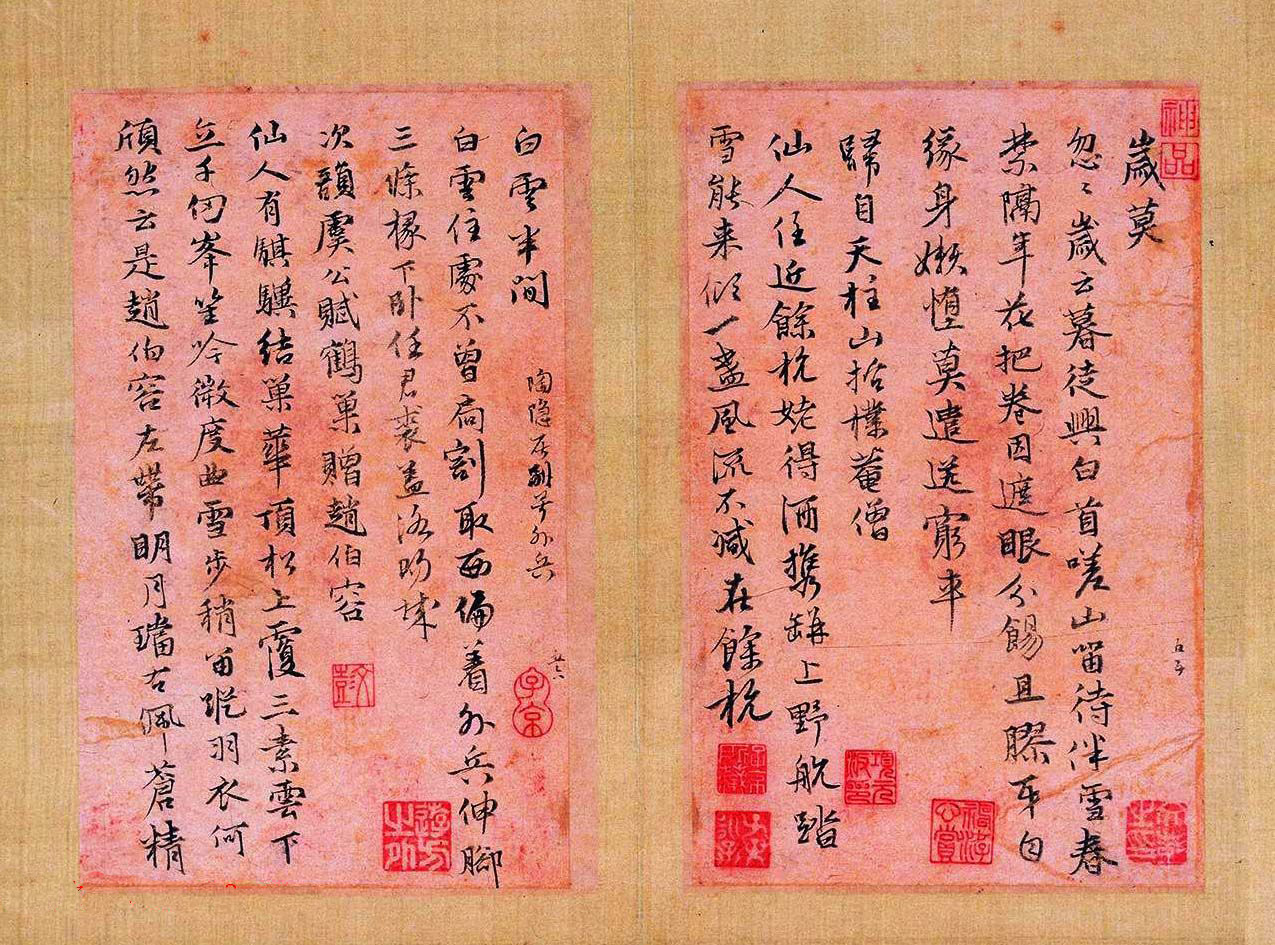 神品
歲莫
忽〻歲云暮徒興白首嗟山留待伴雪春
禁隔年花把卷因遮眼分餳且膠牙自
緣身嬾惰莫遣送窮車
歸自天柱山拈樸菴僧
仙人住近餘杭姥得酒攜缾上野航踏
雪能来傾一盞風流不減在餘杭
白雲半間
陶隱居别号外兵
子京
白雲住處不曾扃割取西偏着外兵伸腳
三條椽下卧任君裘蓋洛城
次韻虞公賦鶴巢贈趙伯容
仙人有騏驥結巢華頂松上覆三素雲下
立千仞峯笙吟微度曲雪步稍留蹤羽衣何
頎然云是趙伯容左帶明月璫右佩蒼精